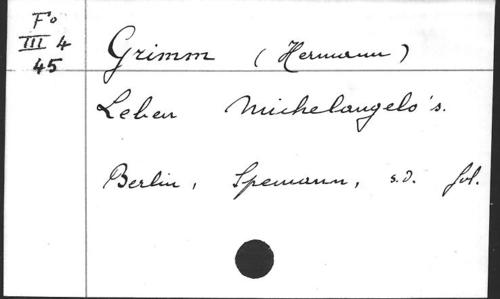 Fo
III 4
45
Grimm (Hermann)
Leben Michelangelo's.
Berlin, Spemann, s.d. fol.